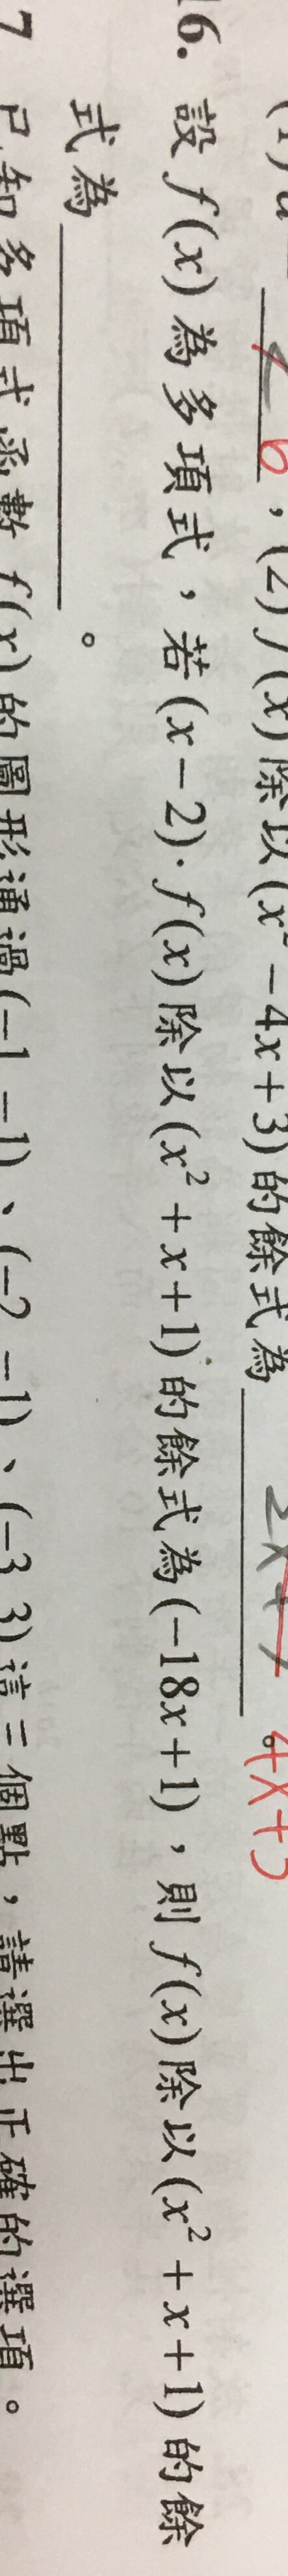 (2) f(x)除以(x²－4x+3)的餘式為 4x+5
16. 設f(x)為多項式，若(x－2)·f(x)除以(x²+x+1)的餘式為(－18x+1)，則f(x)除以(x²+x+1)的餘
式為。
7 已知多項式函數f(x)的圖形通過(－1 －1)、(－2 －1)、(－3 3)這三個點，請選出正確的選項。